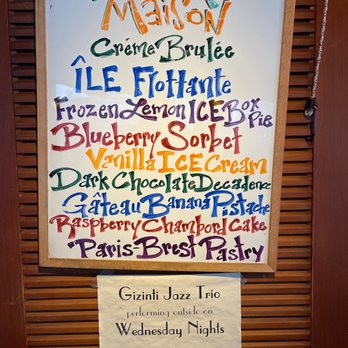 MAISON
Créme Brulée
ÎLE Flottante
Frozen Lemon ICE Box Pie
Blueberry Sorbet
Vanilla ICE Cream
Dark Chocolate Decadenz
Gâteau Banana Pistache
Raspberry Chambord Cake
*Paris-Brest Pastry
Gizinti Jazz Trio
performing outside on
Wednesday Nights